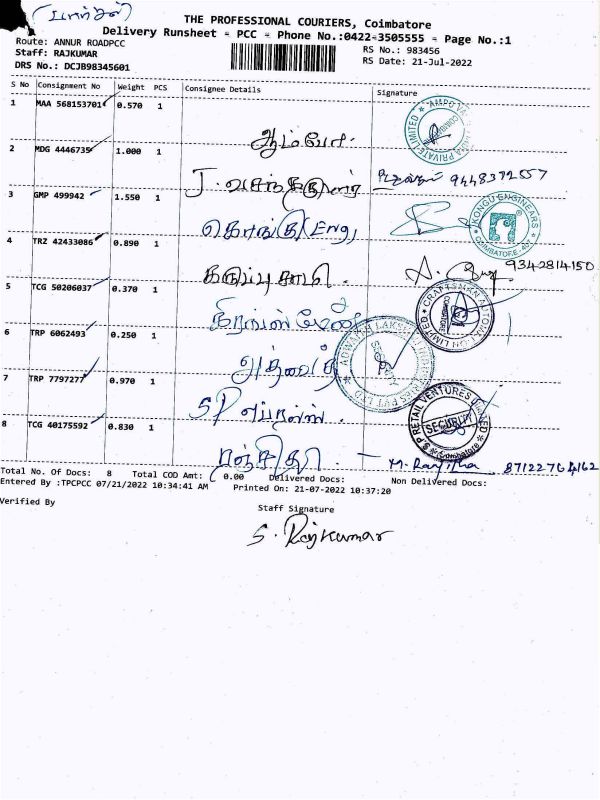 (பார்சல்)
THE PROFESSIONAL COURIERS, Coimbatore
Delivery Runsheet = PCC = Phone No.:0422-3505555 = Page No.:1
Route: ANNUR ROADPCC
RS No.: 983456
Staff: RAJKUMAR
RS Date: 21-Jul-2022
DRS No.: DCJB98345601
S No Consignment No Weight PCS Consignee Details Signature
1 MAA 568153701 0.570 1
2 MDG 4446735 1.000 1
J. 9448372557
3 GMP 499942 1.550 1
KONGU ENGINEERS COIMBATORE
கொங்கு Eng,
4 TRZ 42433086 0.890 1
கருப்புசாமி. 9342814150
5 TCG 50206037 0.370 1
6 TRP 6062493 0.250 1
அத்வைத்
7 TRP 7797277 0.970 1
SP
S.P RETAIL VENTURES LIMITED SECURITY Coimbatore
8 TCG 40175592 0.830 1
ரஞ்சிதா. - M. Ranjitha 87122764162
Total No. Of Docs: 8 Total COD Amt: 0.00 Delivered Docs: Non Delivered Docs:
Entered By :TPCPCC 07/21/2022 10:34:41 AM Printed On: 21-07-2022 10:37:20
Verified By
Staff Signature
S. Rajkumar